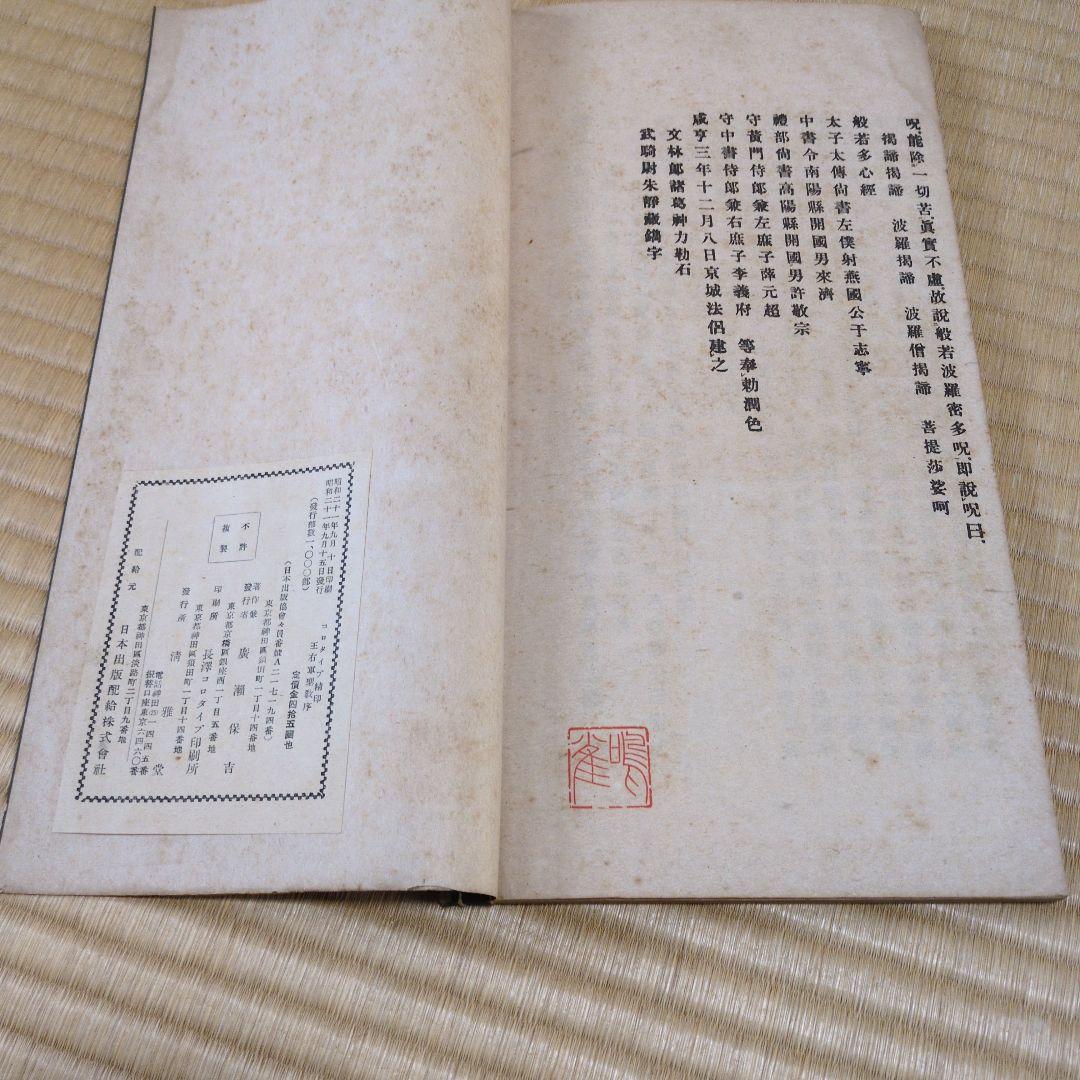 呪能除一切苦眞實不虛故說般若波羅密多呪、即說呪曰、
揭諦揭諦　波羅揭諦　波羅僧揭諦　菩提莎婆呵
般若多心經
太子太傅尙書左僕射燕國公于志寧
中書令南陽縣開國男來濟
禮部尙書高陽縣開國男許敬宗
守黃門侍郞兼左庶子薛元超
守中書侍郞兼右庶子李義府　等奉勅潤色
咸亨三年十二月八日京城法侶建之
文林郞諸葛神力勒石
武騎尉朱靜藏鐫字
鳴雀
昭和二十一年九月十日印刷
昭和二十一年九月十五日發行
（發行部數一、〇〇〇部）
コロタイプ精印
王右軍聖敎序
定價金四拾五圓也
（日本出版協會々員番號A二一七一九四番）
不許複製
東京都神田區須田町一丁目十四番地
著作兼發行者　廣瀨保吉
東京都京橋區銀座西一丁目五番地
印刷所　長澤コロタイプ印刷所
東京都神田區須田町一丁目十四番地
發行所　淸雅堂
電話神田㉕一四四五番
振替口座東京六四六〇番
東京都神田區淡路町二丁目九番地
配給元　日本出版配給株式會社